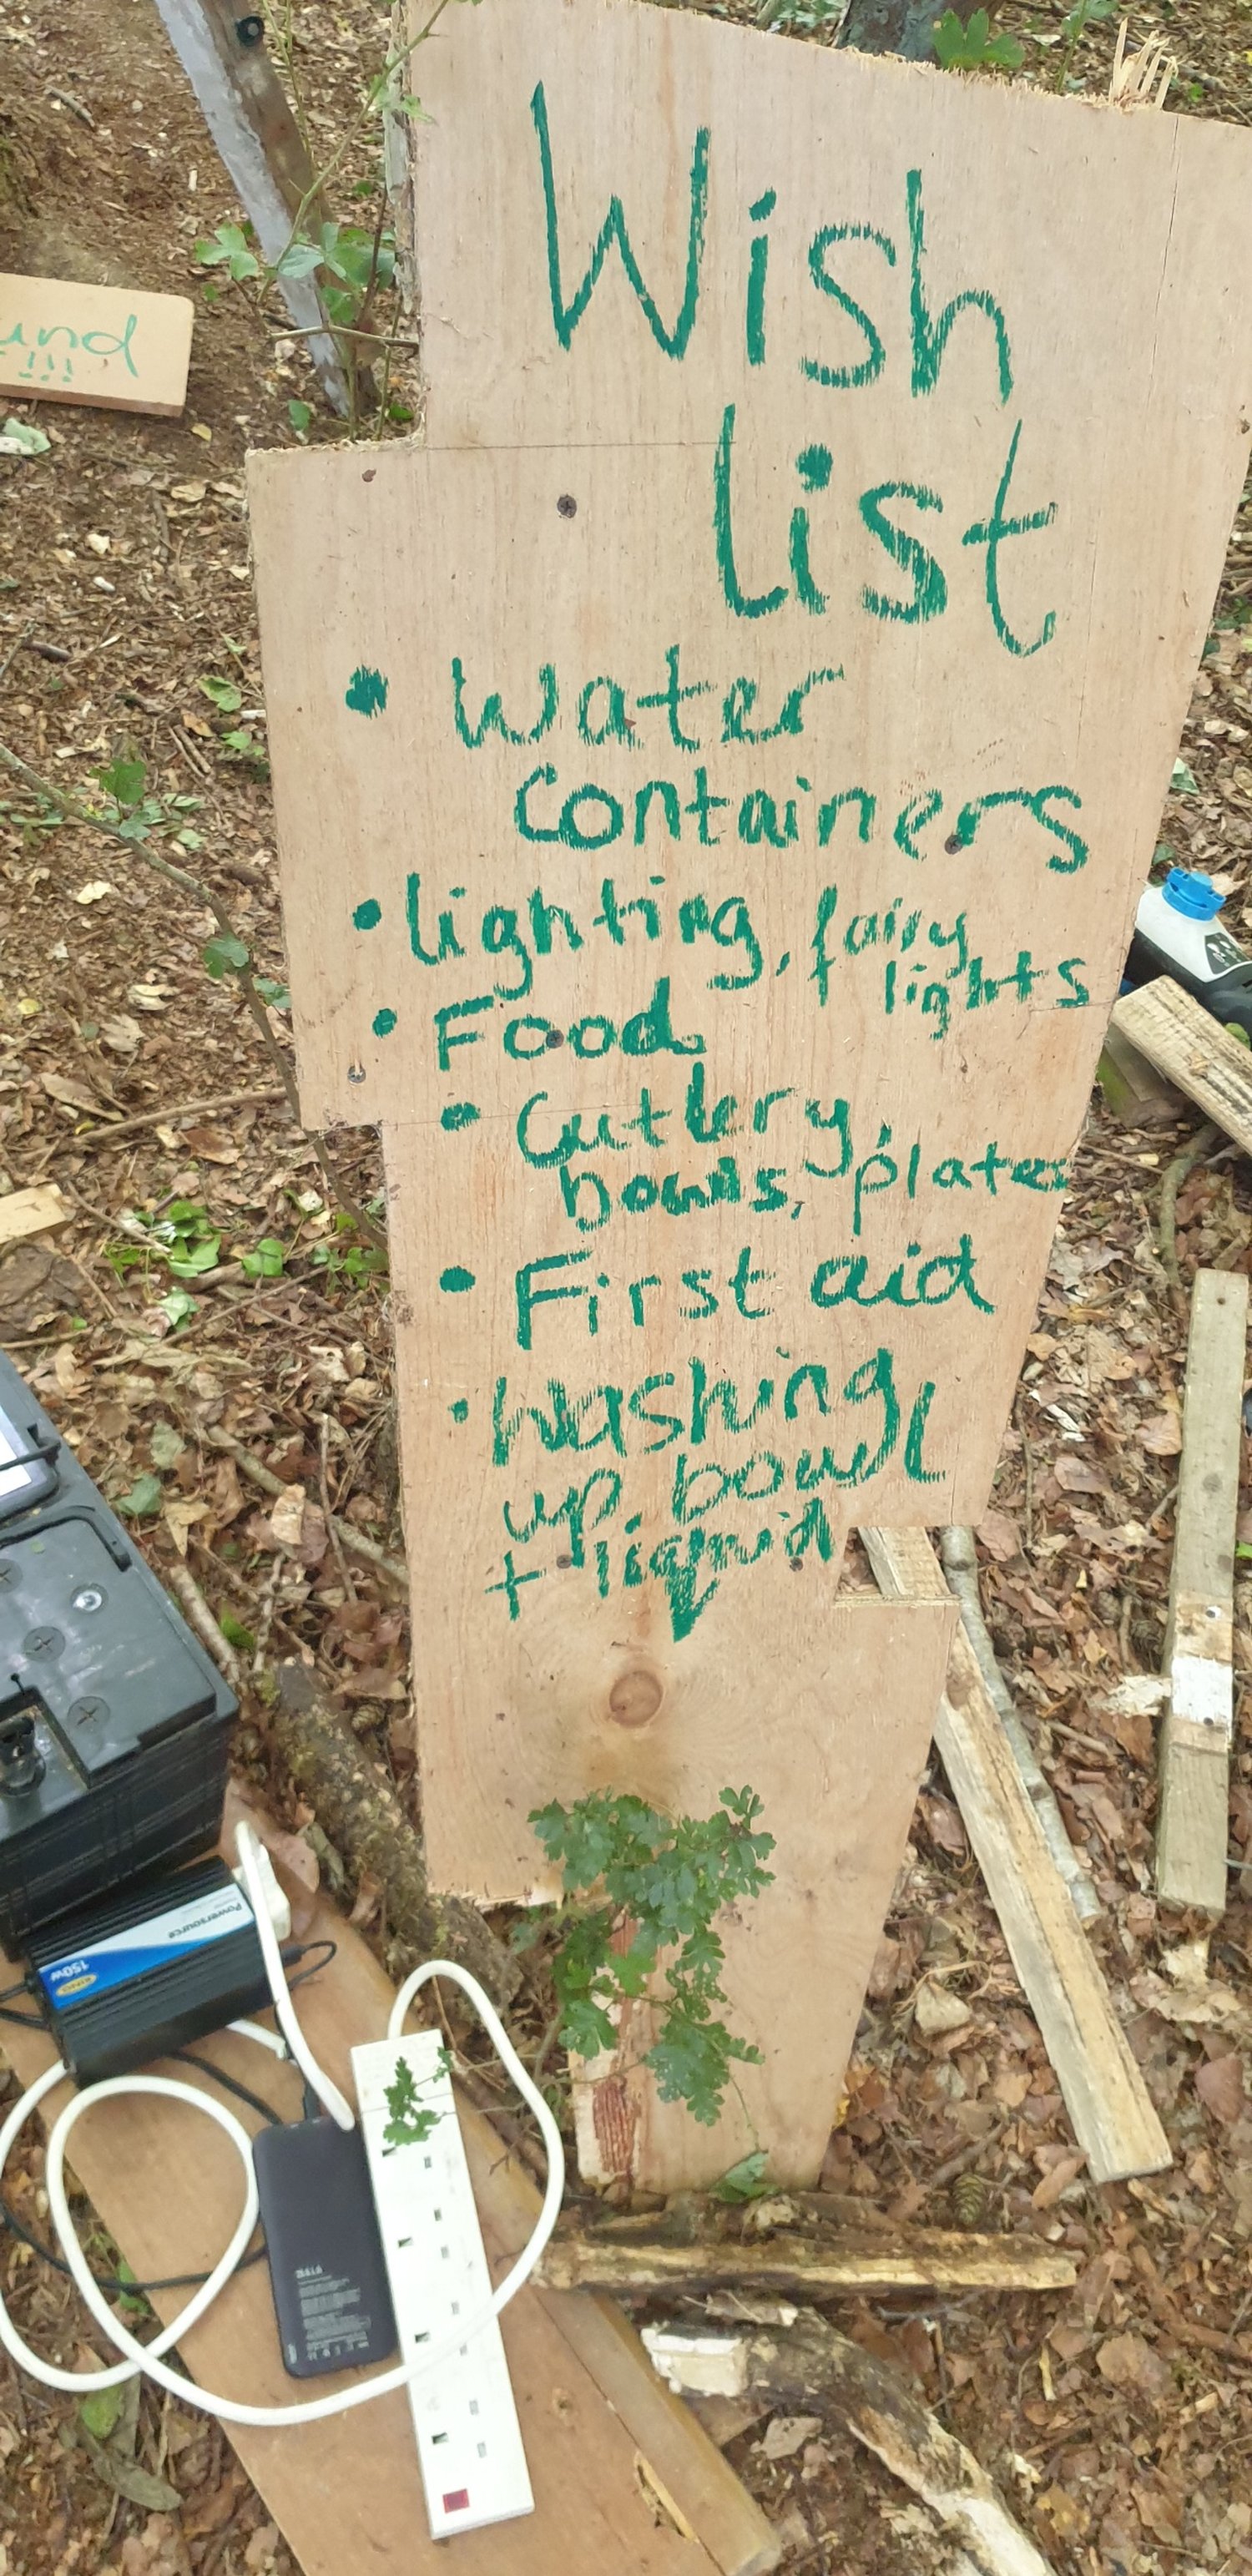 Wish
list
• Water
containers
• lighting, fairy
lights
• Food
• Cutlery,
bowls, plates
• First aid
• Washing
up bowl
+ liquid
und
!!!
Powersource
150w
RING